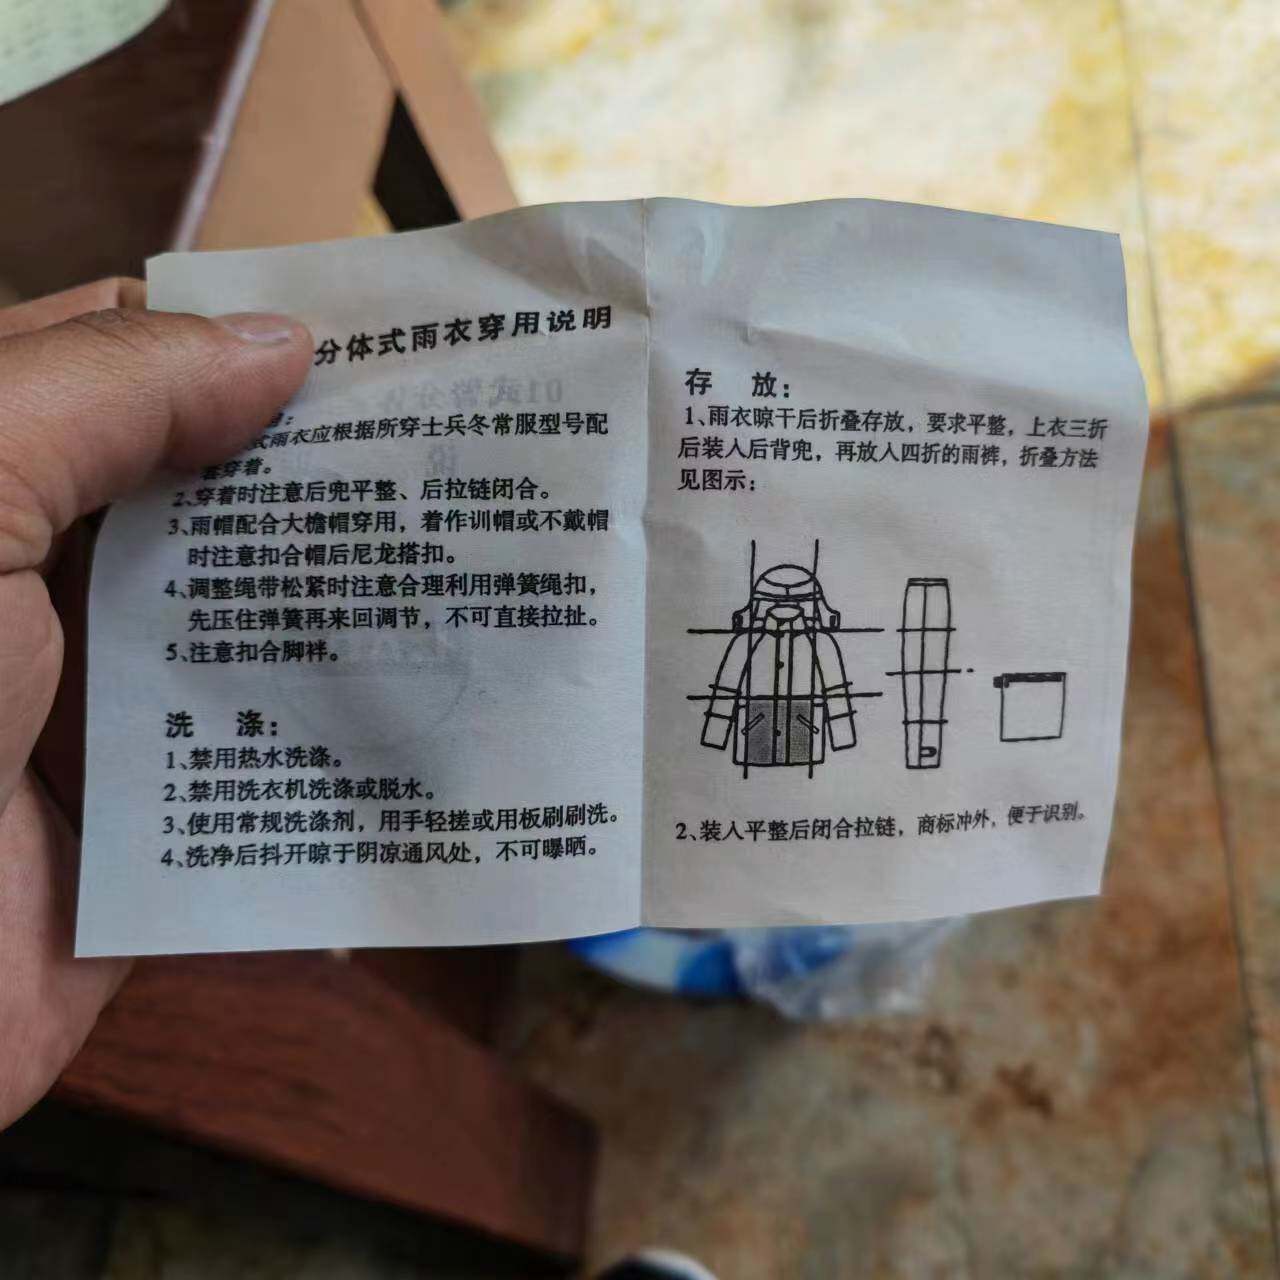 分体式雨衣穿用说明
式雨衣应根据所穿士兵冬常服型号配
套穿着。
2、穿着时注意后兜平整、后拉链闭合。
3、雨帽配合大檐帽穿用，着作训帽或不戴帽
时注意扣合帽后尼龙搭扣。
4、调整绳带松紧时注意合理利用弹簧绳扣，
先压住弹簧再来回调节，不可直接拉扯。
5、注意扣合脚袢。
洗 涤：
1、禁用热水洗涤。
2、禁用洗衣机洗涤或脱水。
3、使用常规洗涤剂，用手轻搓或用板刷刷洗。
4、洗净后抖开晾于阴凉通风处，不可曝晒。
存 放：
1、雨衣晾干后折叠存放，要求平整，上衣三折
后装入后背兜，再放入四折的雨裤，折叠方法
见图示：
2、装入平整后闭合拉链，商标冲外，便于识别。